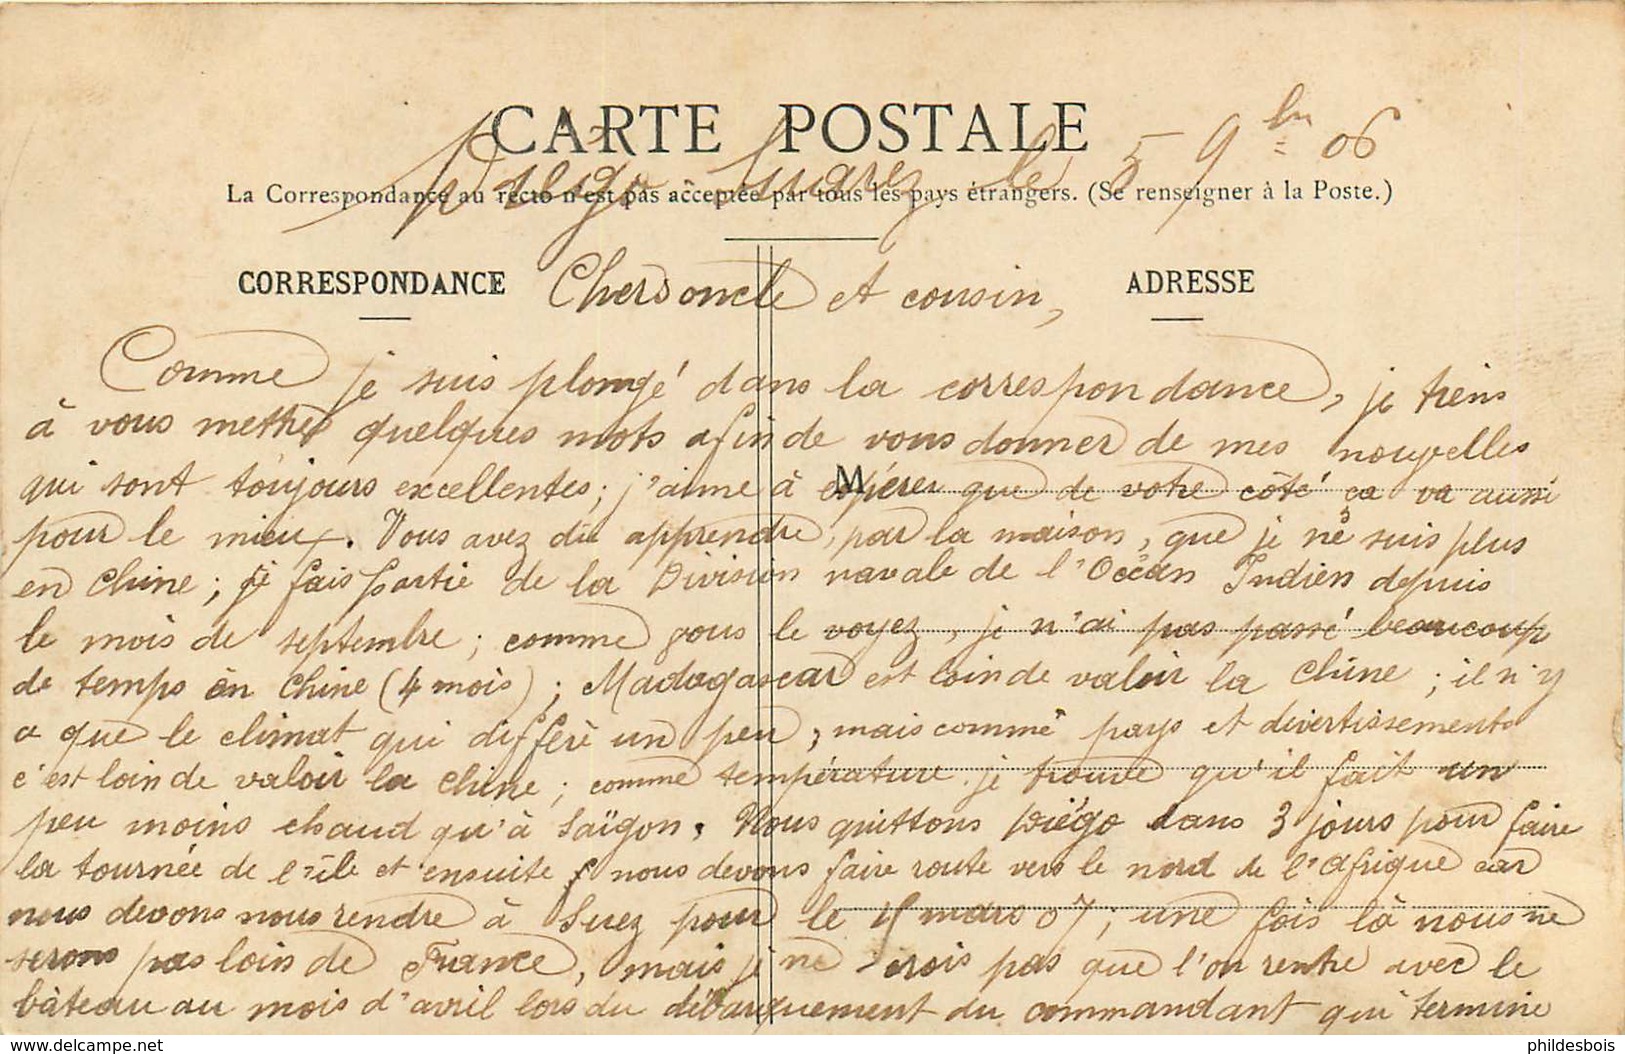 CARTE POSTALE
Diégo-Suarez le 5 9bre 06
La Correspondance au recto n'est pas acceptée par tous les pays étrangers. (Se renseigner à la Poste.)
CORRESPONDANCE
ADRESSE
Chers oncle et cousin,
Comme je suis plongé dans la correspondance, je tiens
à vous mettre quelques mots afin de vous donner de mes nouvelles
M
qui sont toujours excellentes; j'aime à espérer que de votre côté ça va aussi
pour le mieux. Vous avez dû apprendre, par la maison, que je ne suis plus
en Chine; je fais partie de la Division navale de l'Océan Indien depuis
le mois de septembre; comme vous le voyez, je n'ai pas passé beaucoup
de temps en Chine (4 mois); Madagascar est loin de valoir la Chine; il n'y
a que le climat qui diffère un peu, mais comme pays et divertissements
c'est loin de valoir la Chine; comme température je trouve qu'il fait un
peu moins chaud qu'à Saïgon. Nous quittons Diégo dans 3 jours pour faire
la tournée de l'île et ensuite nous devons faire route vers le nord de l'Afrique car
nous devons nous rendre à Suez pour le mars 07; une fois là nous ne
serons pas loin de France, mais je ne crois pas que l'on rentre avec le
bâteau au mois d'avril lors du débarquement du commandant qui termine
https://www.delcampe.net
phildesbois